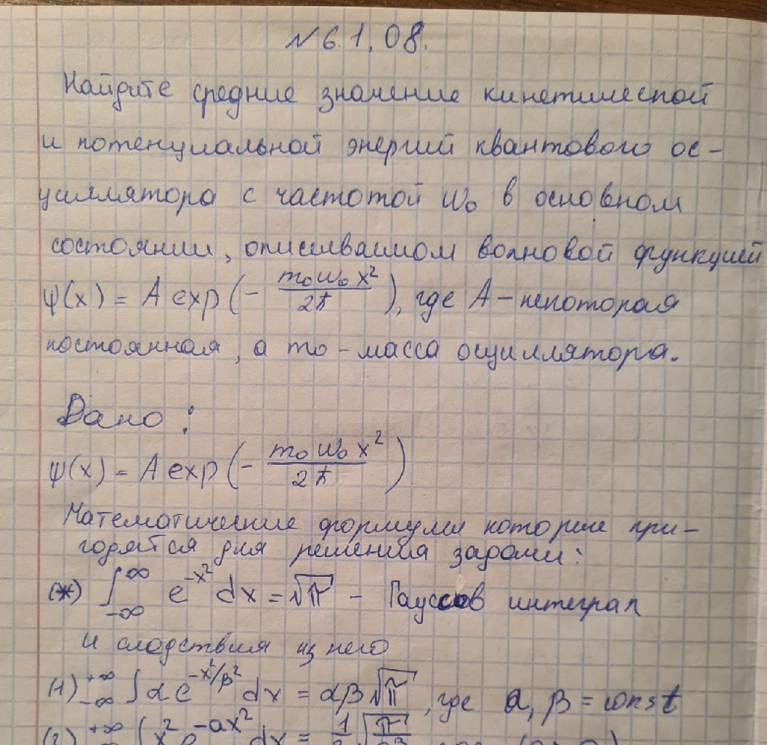 №6.1.08.
Найдите средние значение кинетической
и потенциальной энергий квантового ос-
циллятора с частотой ω₀ в основном
состоянии, описываемом волновой функцией
ψ(x) = A exp(- m₀ω₀x²/2ħ), где A - некоторая
постоянная, а m₀ - масса осциллятора.
Дано:
ψ(x) = A exp(- m₀ω₀x²/2ħ)
Математические формулы которые при-
годятся для решения задачи:
(*) ∫_{-∞}^{∞} e^{-x²} dx = √π - Гауссов интеграл
и следствия из него
(1) _{-∞}^{+∞}∫ αe^{-x²/β²} dx = αβ√π, где α, β = const
(2) ^{+∞}∫ x² e^{-ax²} dx =